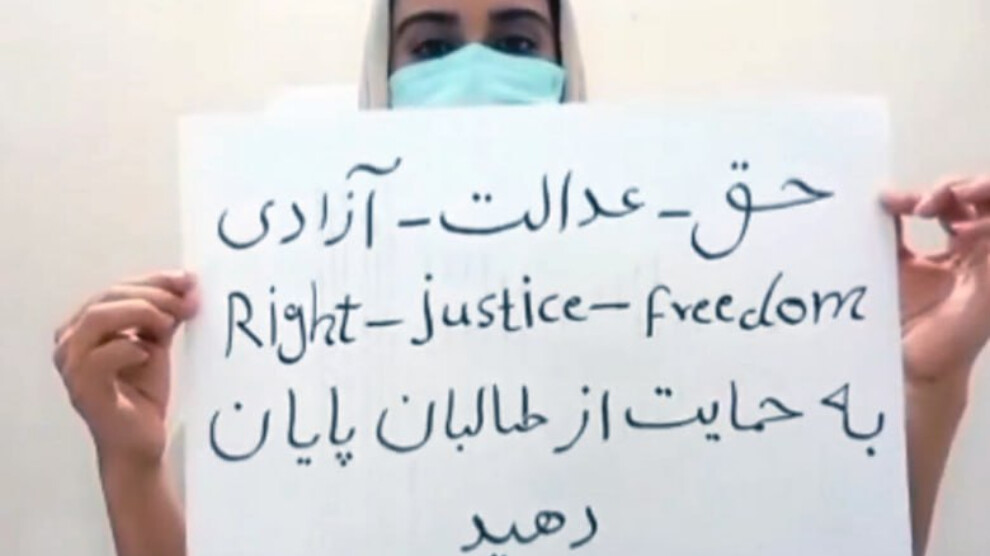 حق - عدالت - آزادی
Right - justice - freedom
به حمایت از طالبان پایان
دهید